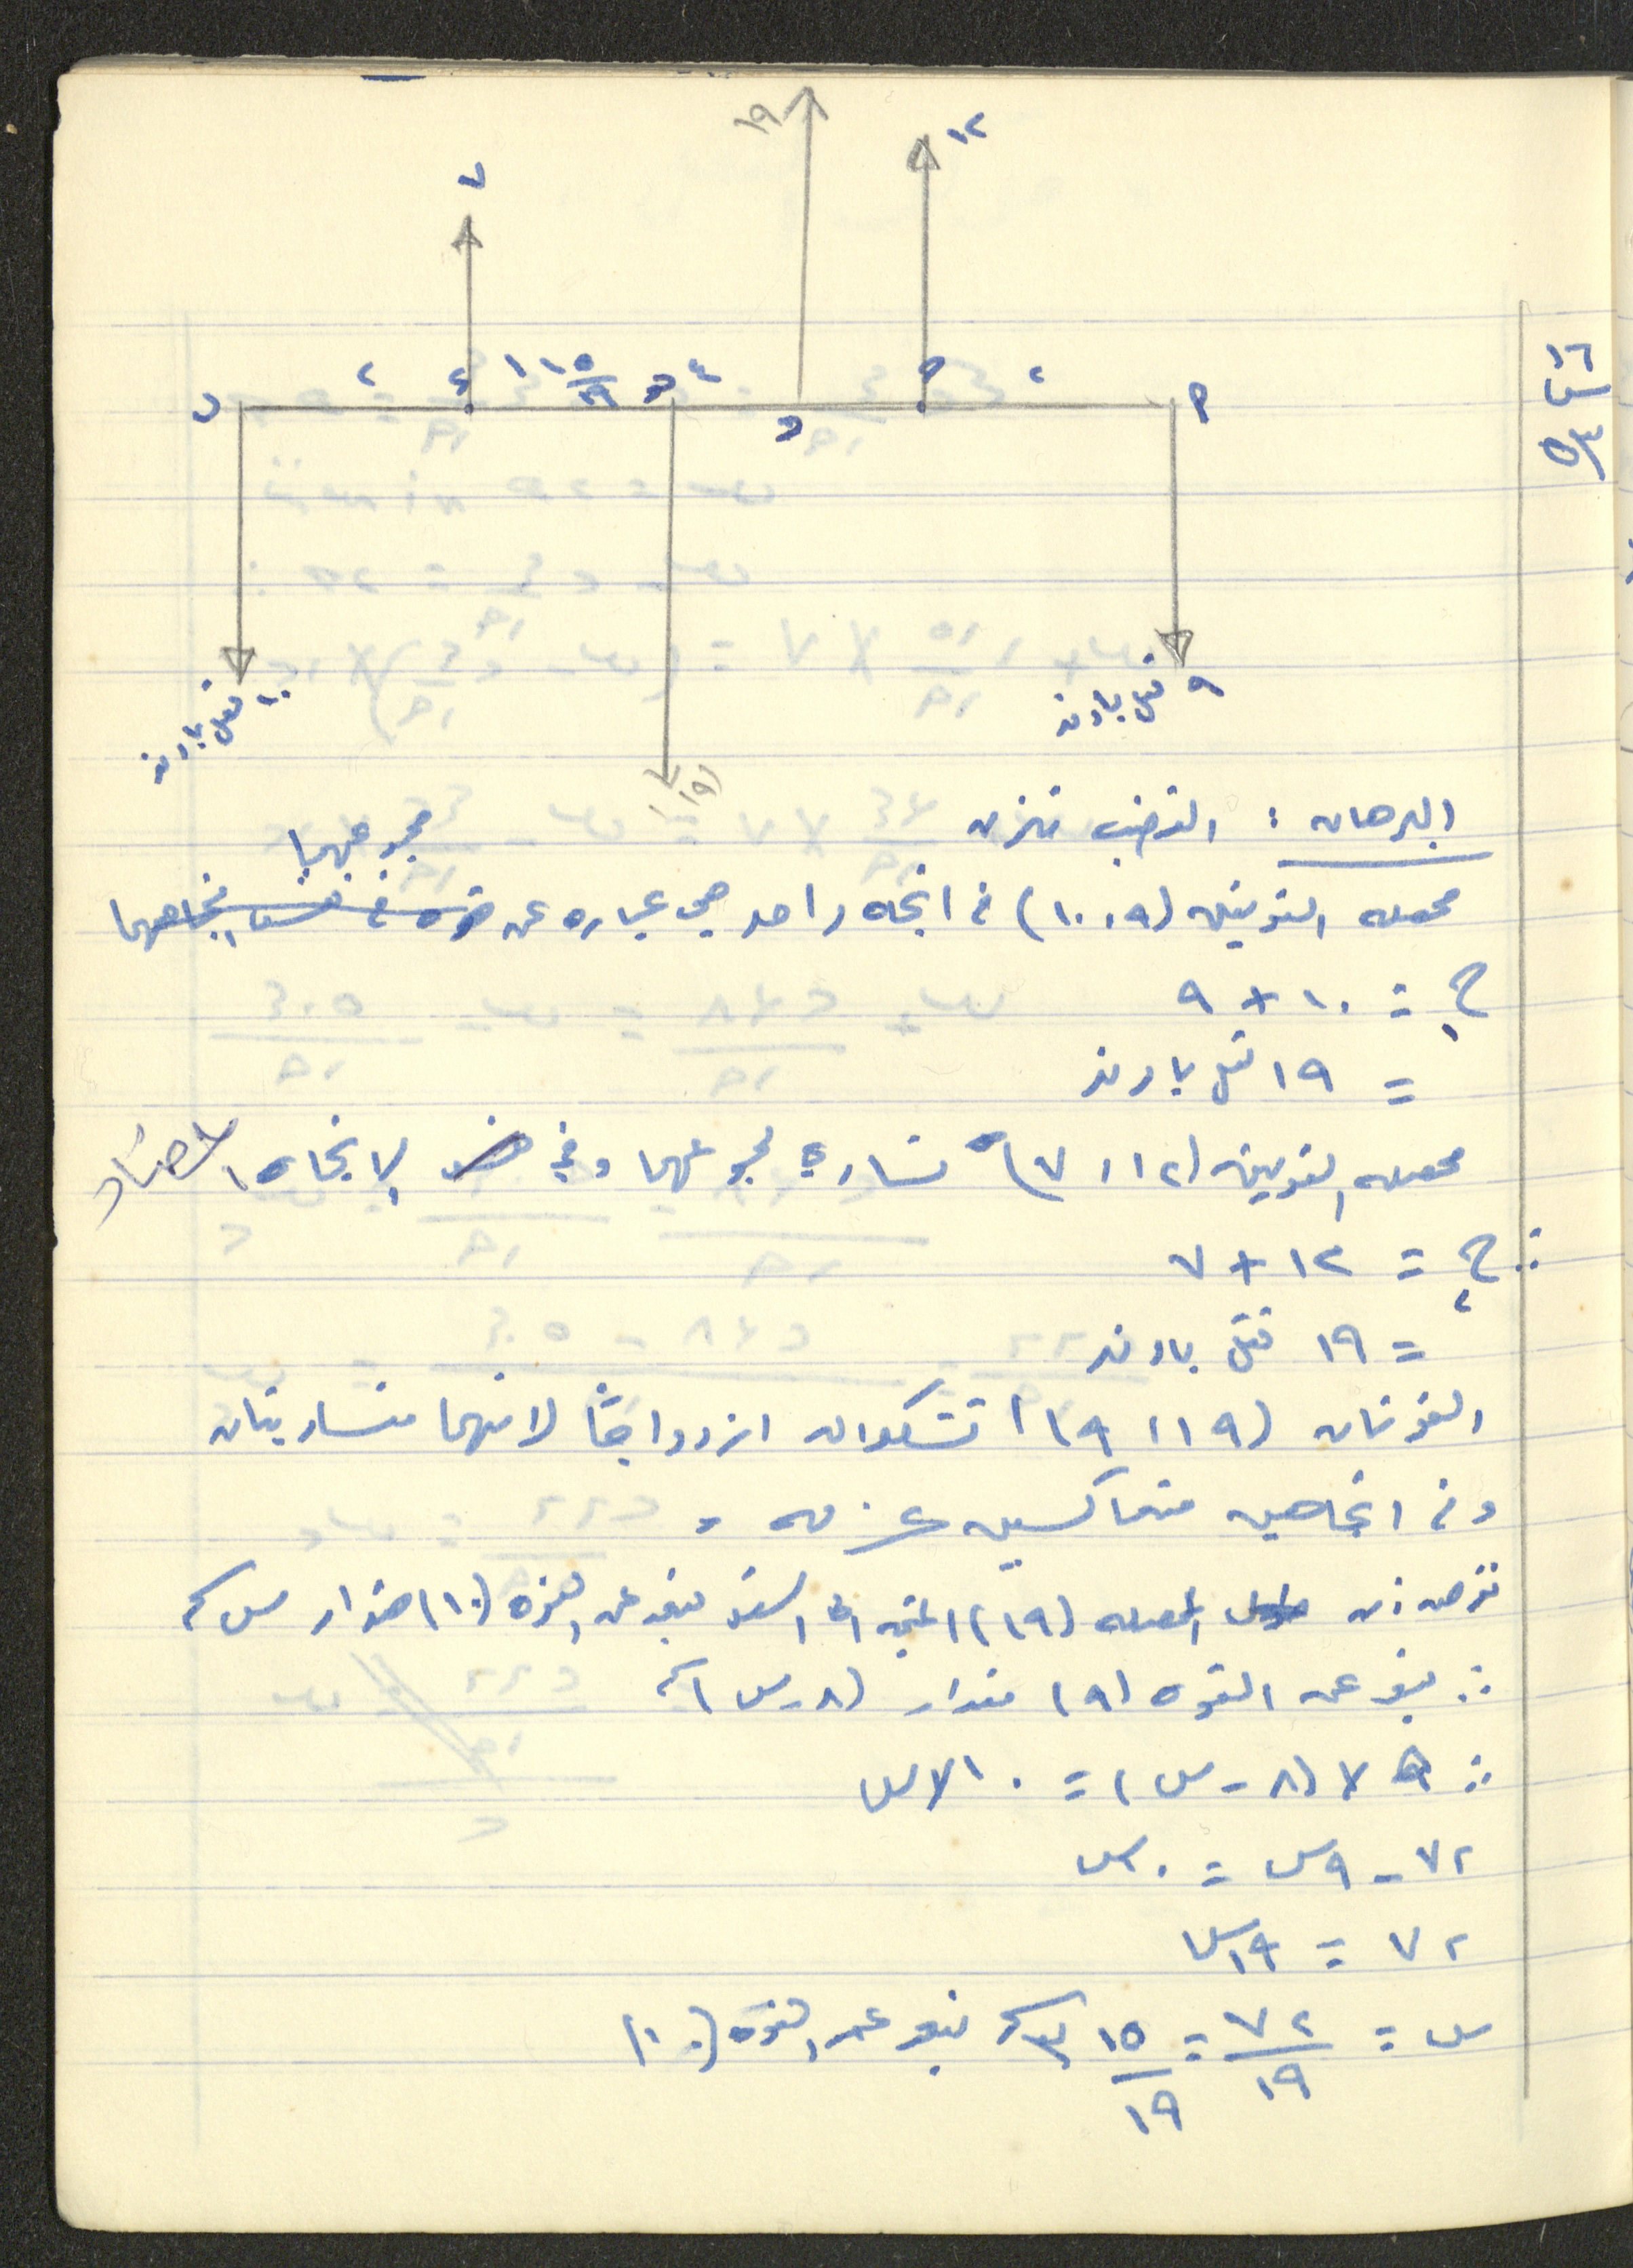 ١٦ س
٥/٣
١٩
١٢
٧
٢
١ ١٥/١٩
٤
٢
٩ ثقل باوند
١٠ ثقل باوند
(١٩)
البرهان : القضيب متزن
مجموعهما
محصلة القوتين (٩ ، ١٠) في اتجاه واحد هي عبارة عن قوة في نفس اتجاههما
ح١ = ١٠ + ٩
= ١٩ ثقل باوند
محصلة القوتين (١٢ ، ٧) تساوي لمجموعهما وفي نفس الاتجاه المضاد
∴ ح٢ = ١٢ + ٧
= ١٩ ثقل باوند
القوتان (١٩ ، ١٩) تشكلان ازدواجاً لانهما متساويتان
وفي اتجاهين متعاكسين
نفرض ان المحصلة (١٩) المتجه الى اسفل تبعد عن القوة (١٠) مقدار س
∴ تبعد عن القوة (٩) مقدار (٨ - س)
∴ ٩ × (٨ - س) = ١٠ × س
٧٢ - ٩س = ١٠س
٧٢ = ١٩س
س = ٧٢/١٩ = ٣ ١٥/١٩ تبعد عن القوة (١٠)